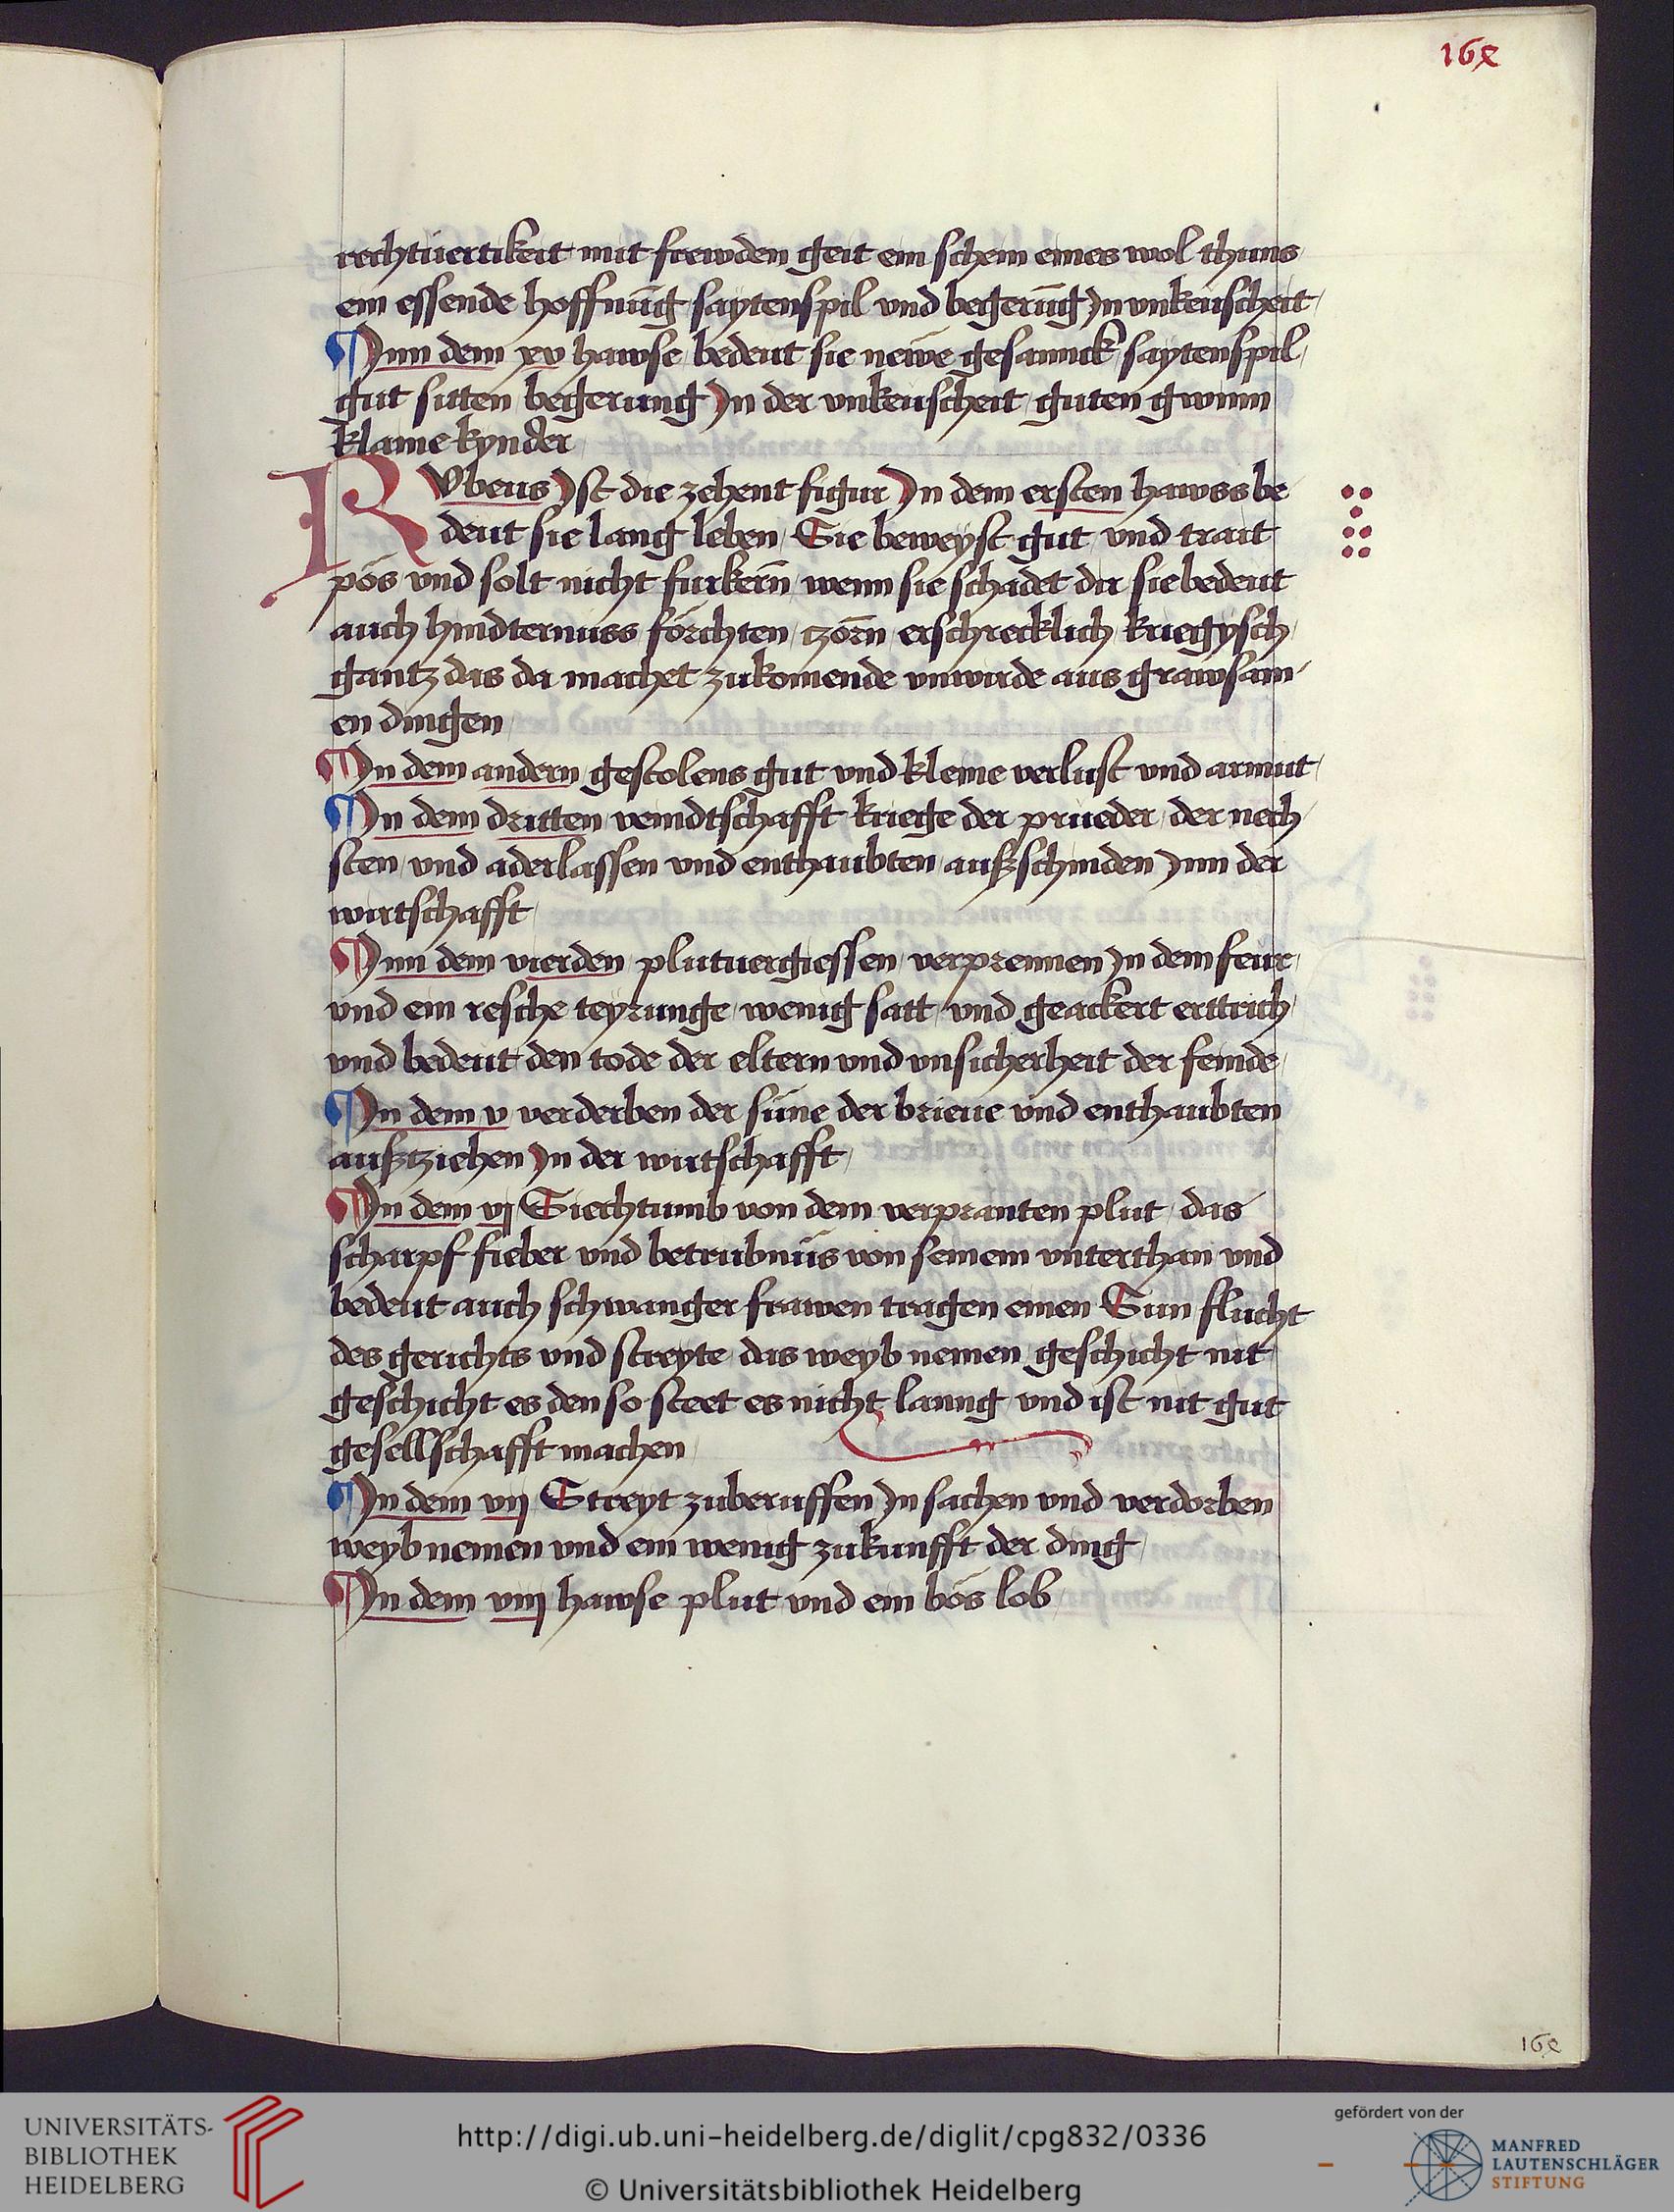 16e
rechtuertikeit mit frewden geit ein schein eines wol thuns
ein essende hoffnūg saytenspil vnd begerūg Jn vnkeuscheit
Jnn dem xv hawse bedeut sie newe gesannck saytenspil
gut sitten begerung Jn der vnkeuscheit guten gwinn
klaine kynder
RVbeus Jst die zehent figur Jn dem ersten hawss be
deut sie lang leben Sie beweyst gut vnd trait
pös vnd solt nicht furkern̄ wenn sie schadet dir sie bedeut
auch hindternuss förchten zorn̄ erschrecklich kriegysch
gantz das da machet zukomende vnwirde aus grawsam
en dingen
Jn dem andern gestolens gut vnd kleine verlust vnd armut
Jn dem dritten veindtschafft kriege der prueder der nech
sten vnd aderlassen vnd enthaubten außschinden Jnn der
wirtschafft
Jnn dem vierden plutuergiessen verprennen Jn dem feur
vnd ein resche teyrunge wenig satt vnd geackert erttrich
vnd bedeut den tode der eltern vnd vnsicherheit der feinde
Jn dem v verderben der süne der brieue vnd enthaubten
außtziehen Jn der wirtschafft
Jn dem vj Siechtumb von dem verpranten plut das
scharpf fieber vnd betrubnüs von seinem vnterthan vnd
bedeut auch schwanger frawen tragen einen Sun flucht
des gerichts vnd streyte das weyb nemen geschicht nit
geschicht es den so steet es nicht lanng vnd ist nit gut
gesellschafft machen
Jn dem vij Streyt zuberuffen Jn sachen vnd verdorben
weyb nemen vnd ein wenig zukunfft der ding
Jn dem viij hawse plut vnd ein bös lob
16e
UNIVERSITÄTS-
BIBLIOTHEK
HEIDELBERG
http://digi.ub.uni-heidelberg.de/diglit/cpg832/0336
© Universitätsbibliothek Heidelberg
gefördert von der
MANFRED
LAUTENSCHLÄGER
STIFTUNG